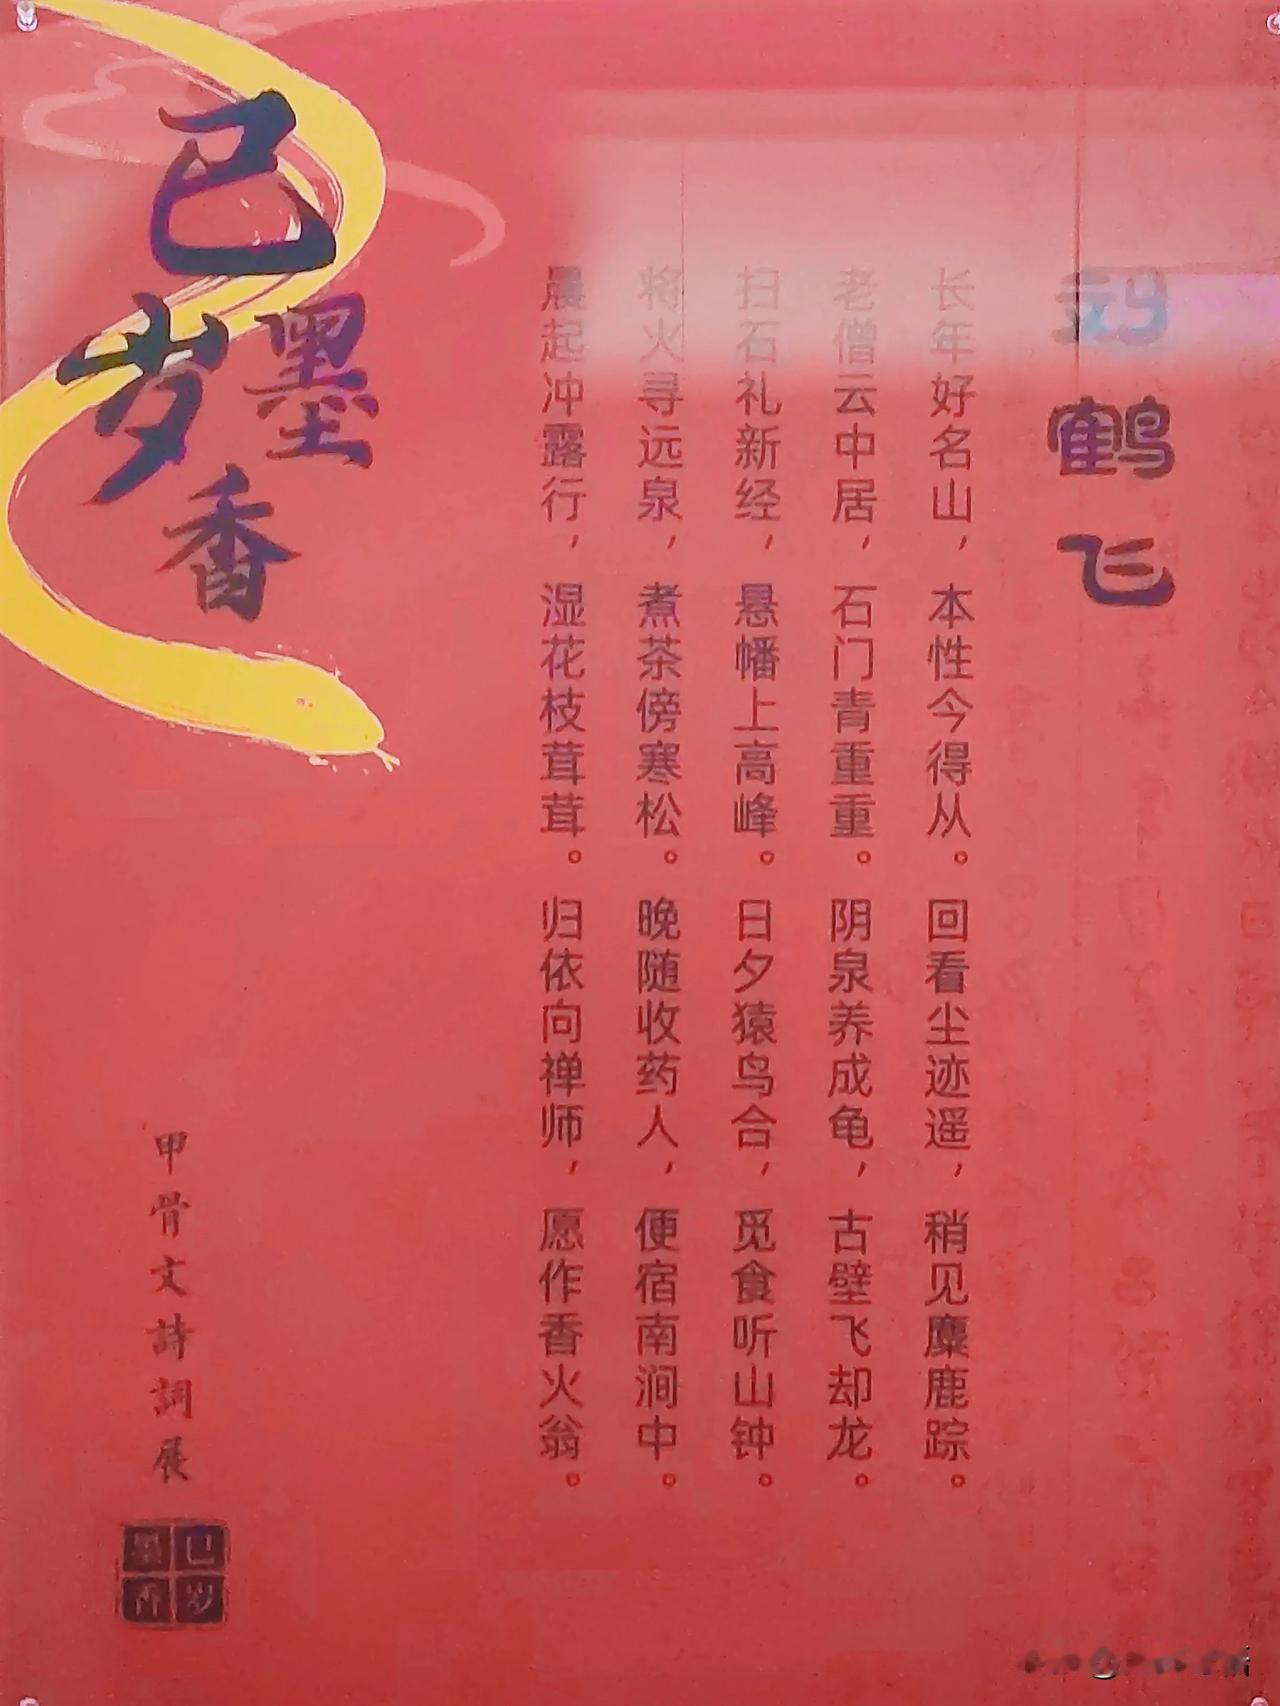 鹤飞
长年好名山，本性今得从。回看尘迹遥，稍见麋鹿踪。
老僧云中居，石门青重重。阴泉养成龟，古壁飞却龙。
扫石礼新经，悬幡上高峰。日夕猿鸟合，觅食听山钟。
将火寻远泉，煮茶傍寒松。晚随收药人，便宿南涧中。
晨起冲露行，湿花枝茸茸。归依向禅师，愿作香火翁。
巳岁墨香
甲骨文詩詞展
巳岁墨香